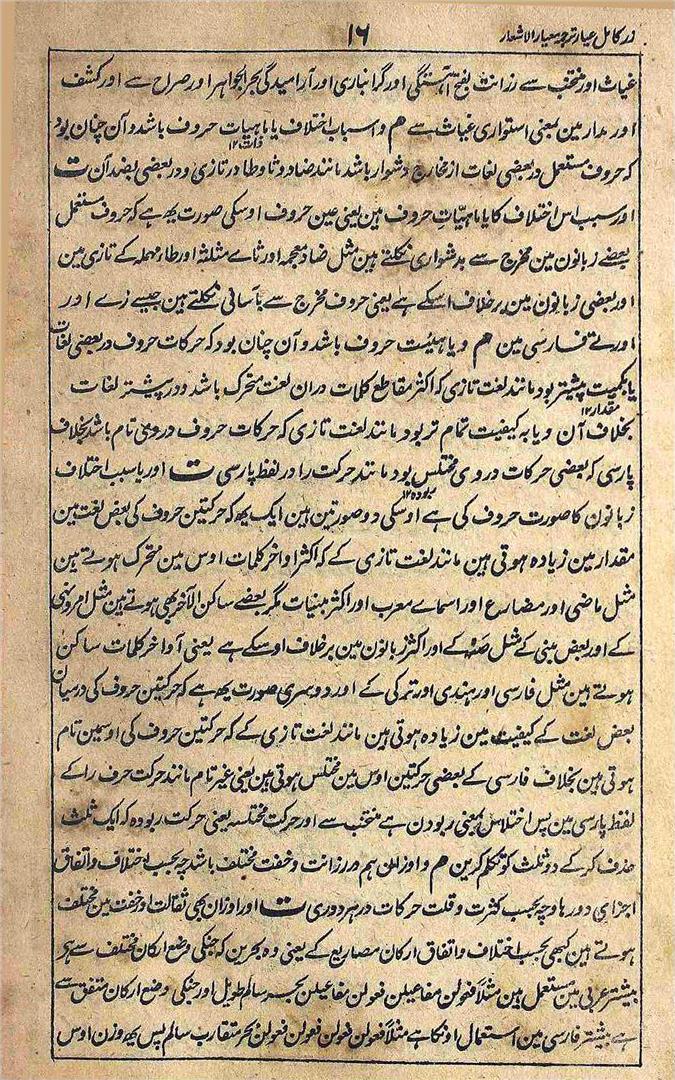 زر کامل عیار ترجمہ معیار الاشعار
۱۶
غیاث اور منتخب سے رزانت بفتح آہستگی اور گرانباری اور آرامیدگی بحر الجواہر اور صراح سے اور کشف
اور مدار مین بمعنی استواری غیاث سے هم و اسباب اختلاف یا ماہیات حروف باشد و آن چنان بود
ذات ۱۲
کہ حروف مستعمل در بعضی لغات از مخارج دشوار باشد مانند ضاد و ثا و طا در تازی و در بعضی بضد آن ت
اور سبب اس اختلاف کا یا ماہیّات حروف ہین یعنی عین حروف اوسکی صورت یہ ہے کہ حروف مستعمل
بعضے زبانون مین مخرج سے بدشواری نکلتے ہین مثل ضاد معجمہ اور ثاے مثلثہ اور طاء مہملہ کے تازی مین
اور بعضی زبانون مین برخلاف اسکے ہے یعنی حروف مخرج سے بآسانی نکلتے ہین جیسے زے اور
اور بے فارسی مین هم و یا ہیئت حروف باشد و آن چنان بود کہ حرکات حروف در بعضی لغات
یا بکمیت پیشتر بود مانند لغت تازی کہ اکثر مقاطع کلمات دران لغت متحرک باشد و در بیشتر لغات
مقدار ۱۲
بخلاف آن و یا بہ کیفیت تمام تر بود مانند لغت تازی کہ حرکات حروف در وی تام باشد بخلاف
پارسی کہ بعضی حرکات در وی مختلس بود مانند حرکت را در لفظ پارسی ت اور یا سبب اختلاف
ربودہ ۱۲
زبانون کا صورت حروف کی ہے اوسکی دو صورتین ہین ایک یہ کہ حرکتین حروف کی بعض لغت مین
مقدار مین زیادہ ہوتی ہین مانند لغت تازی کے کہ اکثر اواخر کلمات اوس مین متحرک ہوتے ہین
مثل ماضی اور مضارع اور اسماے معرب اور اکثر مبنیات مگر بعضے ساکن الآخر بھی ہوتے ہین مثل امر و نہی
کے اور بعض مبنی کے مثل صَہْ کے اور اکثر زبانون مین برخلاف اوسکے ہے یعنی اواخر کلمات ساکن
ہوتے ہین مثل فارسی اور ہندی اور ترکی کے اور دوسری صورت یہ ہے کہ حرکتین حروف کی درمیان
بعض لغت کے کیفیت مین زیادہ ہوتی ہین مانند لغت تازی کے کہ حرکتین حروف کی اوسمین تام
ہوتی ہین بخلاف فارسی کے بعضی حرکتین اوس مین مختلس ہوتی ہین یعنی غیر تام مانند حرکت حرف را کے
لفظ پارسی مین پس اختلاس بمعنی ربودن ہے منتخب سے اور حرکت مختلسہ یعنی حرکت ربودہ کہ ایک ثلث
حذف کرکے دو ثلث کو تکلم کرین هم و اوزان ہم در رزانت و خفت مختلف باشد چہ بحسب اختلاف و اتفاق
اجزای دورہا و چہ بحسب کثرت و قلت حرکات در ہر دوری ت اور اوزان بھی ثقالت اور خفت مین مختلف
ہوتے ہین کبھی بحسب اختلاف و اتفاق ارکان مصاریع کے یعنی وہ بحرین کہ جنکی وضع ارکان مختلف سے ہی
بیشتر عربی مین مستعمل ہین مثلاً فعولن مفاعیلن فعولن مفاعیلن بحر سالم طویل اور جنکی وضع ارکان متفق سے
ہے بیشتر فارسی مین استعمال اونکا ہے مثلاً فعولن فعولن فعولن فعولن بحر متقارب سالم پس یہ وزن اوس